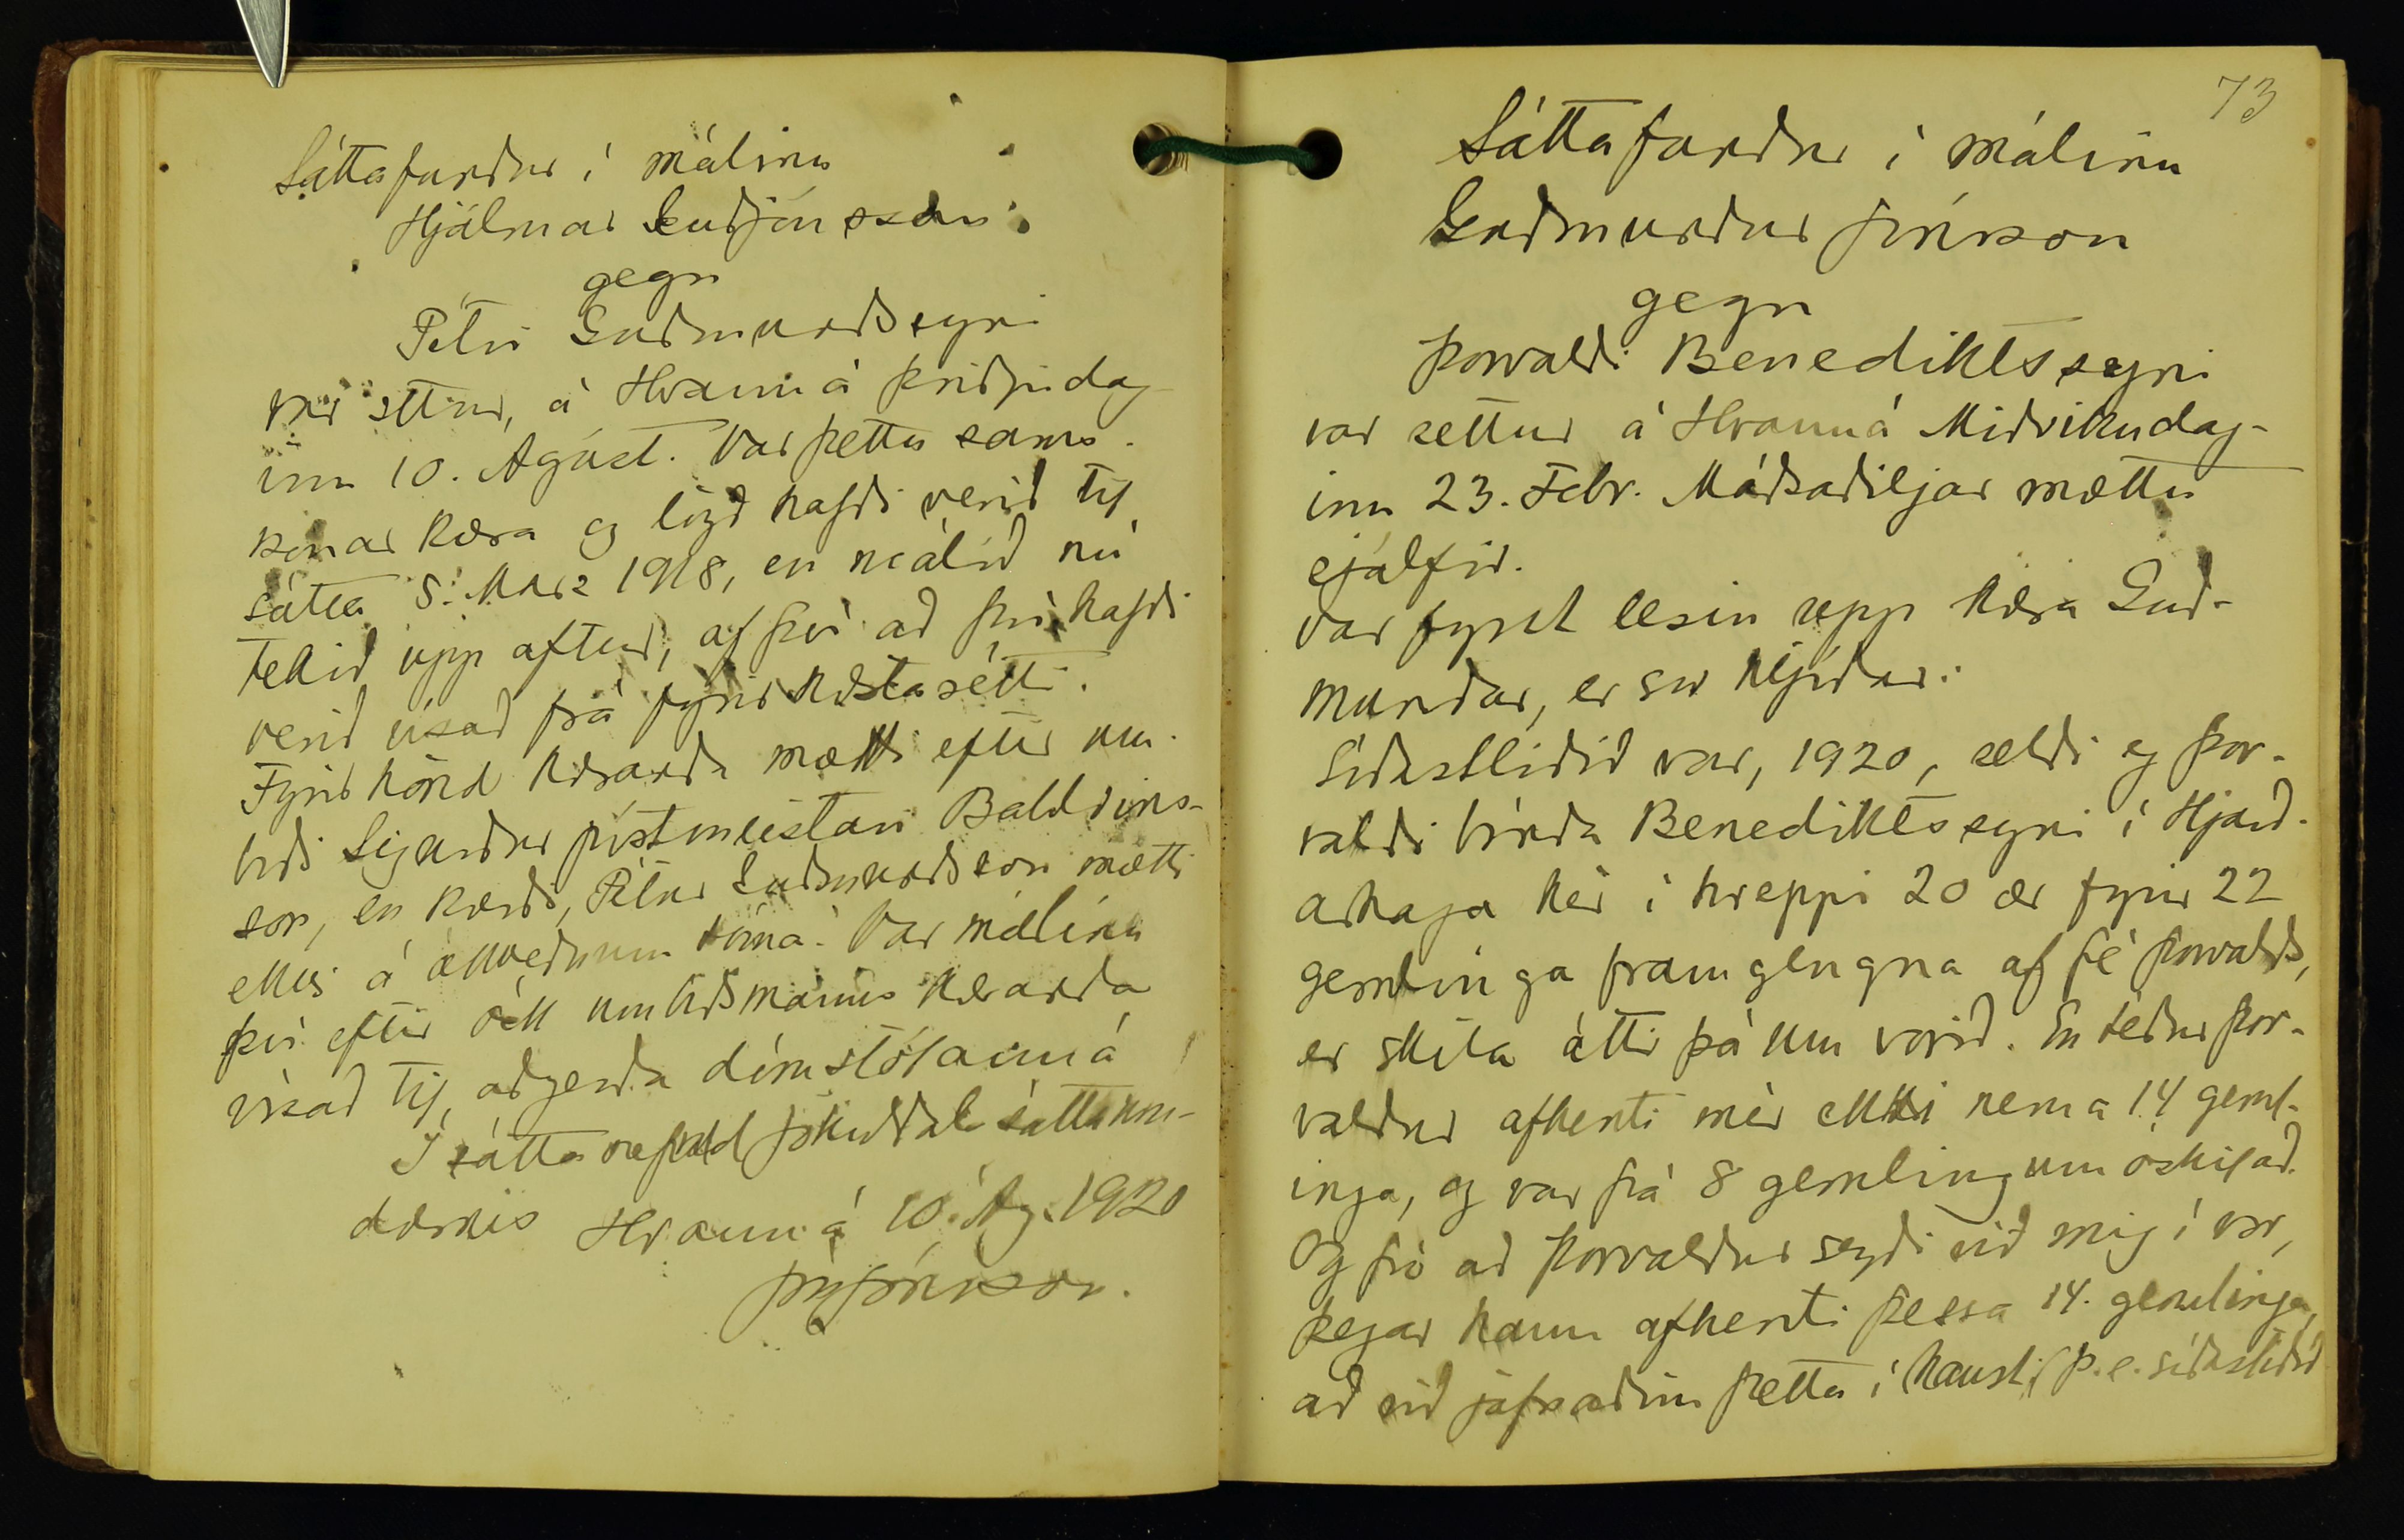 Sáttafundur í málinu
Hjálmar Guðjónsson
gegn
Pétri Guðmundssyni
var settur, á Hvanná þriðjudag
inn 10. Ágúst. Var þetta sams-
konar kæra og lögð hafði verið til
sátta 8. Marz 1918, en málið nú
tekið upp aftur, af því að því hafði
verið vísað frá fyrir hæstarétti.
Fyrir hönd kæranda mætti eftir um-
boði Sigurður póstmeistari Baldvins-
son, en kærði, Pétur Guðmundsson mætti
ekki á ákveðnum tíma. Var málinu
því eftir ósk umboðsmanns kæranda
vísað til aðgerða dómstólanna
Í sáttanefnd Jökuldals sáttaum-
dæmis Hvanná 10. Ág. 1920
Jón Jónsson.
73
Sáttafundur í málinu
Guðmundur Jónsson
gegn
Þorvaldi Benediktssyni
var settur á Hvanná Miðvikudag-
inn 23. Febr. Málsaðiljar mættu
sjálfir.
Var fyrst lesin upp kæra Guð-
mundar, er svo hljóðar:
Síðastliðið vor, 1920, seldi eg Þor-
valdi bónda Benediktssyni í Hjarð-
arhaga hér í hreppi 20 ær fyrir 22
gemlinga framgengna af fé Þorvalds,
er skila átti þá um vorið. En téður Þor-
valdur afhenti mér ekki nema 14 geml-
inga, og var frá 8 gemlingum óskilað.
Og þó að Þorvaldur segði við mig í vor,
þegar hann afhenti þessa 14. gemlinga,
að við jöfnuðum þetta í haust, þ.e. síðastliðið